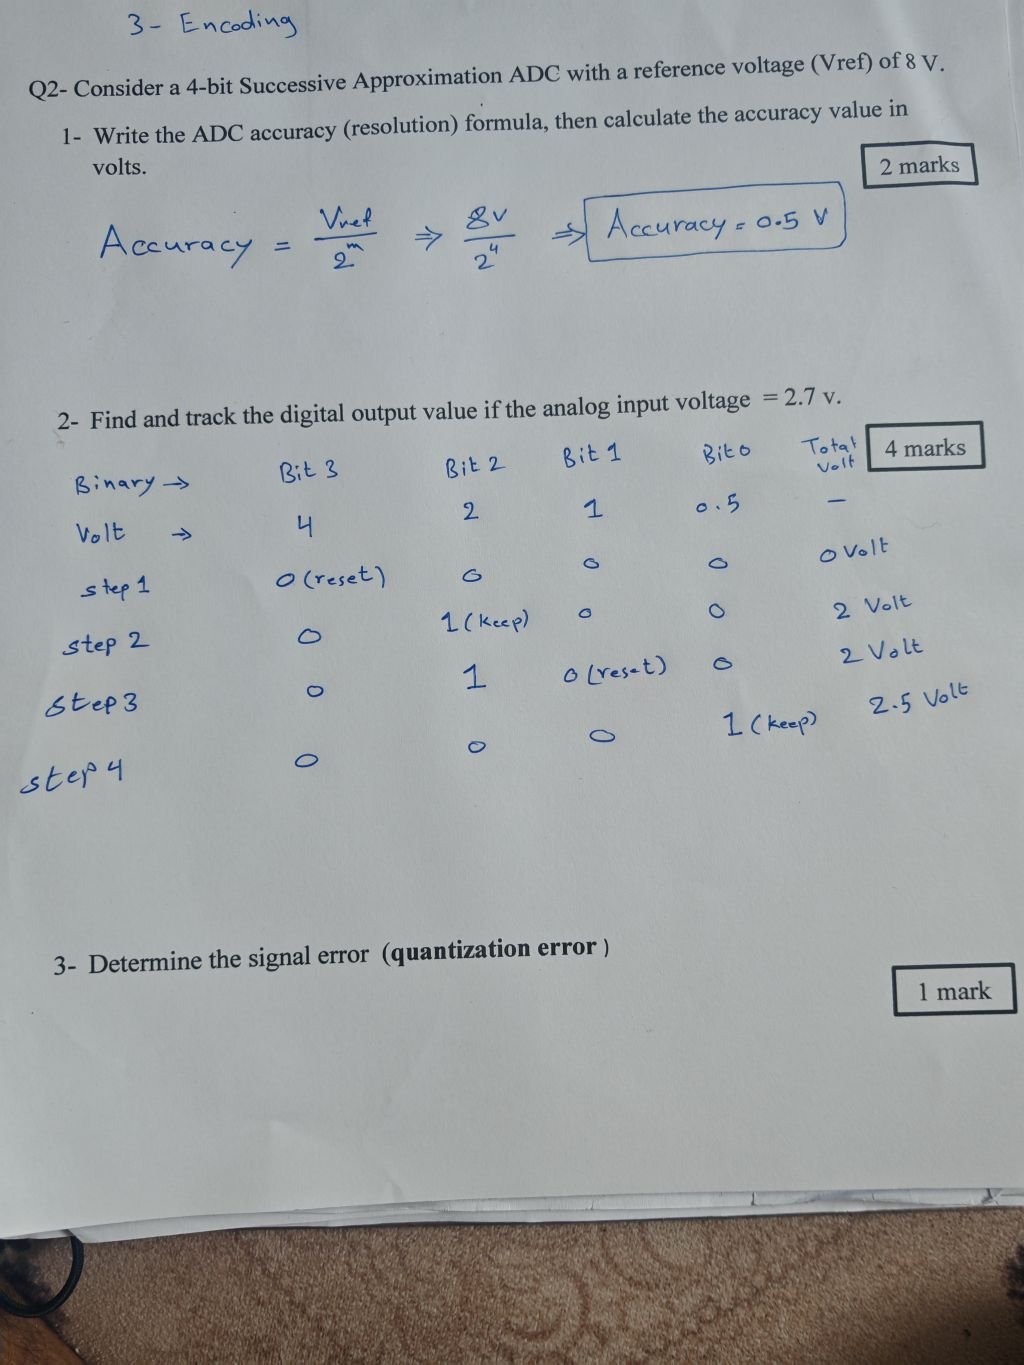 3- Encoding
Q2- Consider a 4-bit Successive Approximation ADC with a reference voltage (Vref) of 8 V.
1- Write the ADC accuracy (resolution) formula, then calculate the accuracy value in
volts.
2 marks
Accuracy = Vref / 2^m ⇒ 8v / 2^4 ⇒ Accuracy = 0.5 V
2- Find and track the digital output value if the analog input voltage = 2.7 v.
4 marks
Binary → Bit 3 Bit 2 Bit 1 Bit 0 Total Volt
Volt → 4 2 1 0.5 –
step 1 0 (reset) 0 0 0 0 Volt
step 2 0 1 (keep) 0 0 2 Volt
step 3 0 1 0 (reset) 0 2 Volt
step 4 0 0 0 1 (keep) 2.5 Volt
3- Determine the signal error (quantization error )
1 mark